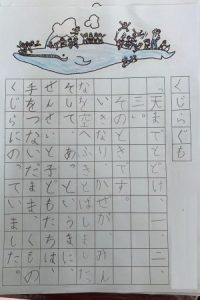 くじらぐも
「天までとどけ、一、二、
三。」
そのときです。
いきなり、かぜが、みん
なを空へふきとばしました
そして、あっというまに、
せんせいと子どもたちは、
手をつないだまま、くもの
くじらにのっていました。